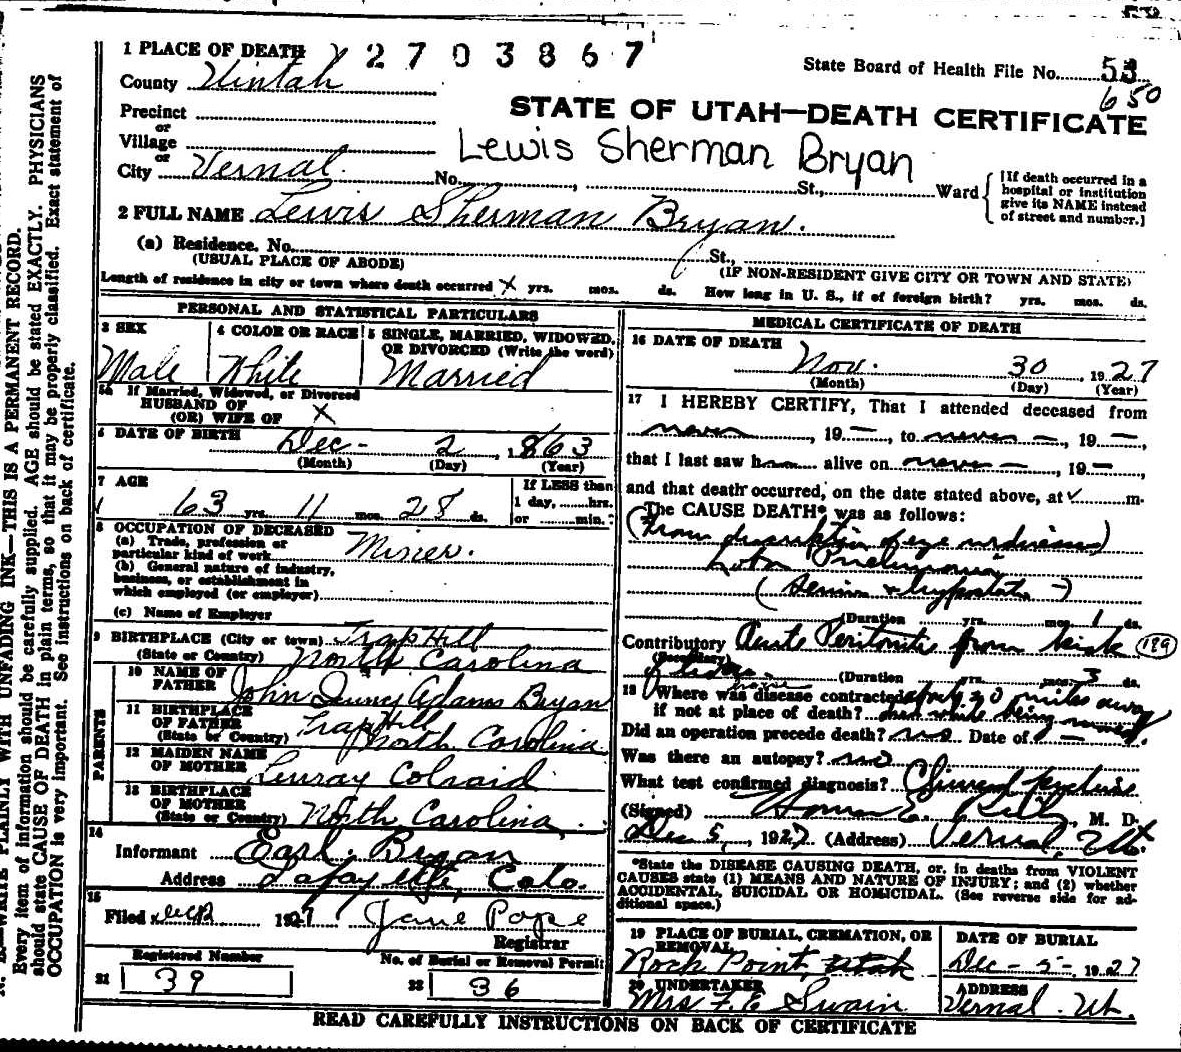 1 PLACE OF DEATH
2 7 0 3 8 6 7
State Board of Health File No. 53
650
County Uintah
STATE OF UTAH—DEATH CERTIFICATE
Precinct
or
Village
Lewis Sherman Bryan
or
City Vernal No. , St., Ward
[If death occurred in a
hospital or institution
give its NAME instead
of street and number.]
2 FULL NAME Lewis Sherman Bryan.
(a) Residence. No. St.,
(USUAL PLACE OF ABODE) (IF NON-RESIDENT GIVE CITY OR TOWN AND STATE)
Length of residence in city or town where death occurred x yrs. mos. ds. How long in U. S., if of foreign birth? yrs. mos. ds.
PERSONAL AND STATISTICAL PARTICULARS
3 SEX 4 COLOR OR RACE 5 SINGLE, MARRIED, WIDOWED,
OR DIVORCED (Write the word)
Male White Married
5a If Married, Widowed, or Divorced
HUSBAND OF
(OR) WIFE OF X
6 DATE OF BIRTH Dec- 2, 1863
(Month) (Day) (Year)
7 AGE If LESS than
63 yrs. 11 mos. 28 ds. 1 day, hrs.
or min.
8 OCCUPATION OF DECEASED
(a) Trade, profession or
particular kind of work Miner.
(b) General nature of industry,
business, or establishment in
which employed (or employer)
(c) Name of Employer
9 BIRTHPLACE (City or town) Trap Hill
(State or Country) North Carolina
PARENTS
10 NAME OF
FATHER John Quincy Adams Bryan
11 BIRTHPLACE
OF FATHER Trap Hill
(State or Country) North Carolina
12 MAIDEN NAME
OF MOTHER
13 BIRTHPLACE
OF MOTHER
(State or Country) North Carolina.
14
Informant Earl Bryan
Address Lafayette, Colo.
15
Filed 1927 Jane Pope
Registrar
Registered Number No. of Burial or Removal Permit
21 39 22 36
MEDICAL CERTIFICATE OF DEATH
16 DATE OF DEATH
Nov. 30, 1927
(Month) (Day) (Year)
17 I HEREBY CERTIFY, That I attended deceased from
never, 19—, to never —, 19—
that I last saw h alive on never —, 19—
and that death occurred, on the date stated above, at m.
The CAUSE DEATH* was as follows:
(From description of eye
Pneumonia
(
(Duration yrs. mos. 1 ds.
Contributory Acute Peritonitis from kick 189
(Secondary)
(Duration yrs. mos. 3 ds.
18 Where was disease contracted 30 miles away
if not at place of death? while being moved.
Did an operation precede death? no Date of —
Was there an autopsy? no
What test confirmed diagnosis?
(Signed) , M. D.
Dec 5, 1927 (Address) Vernal, Ut.
*State the DISEASE CAUSING DEATH, or, in deaths from VIOLENT
CAUSES state (1) MEANS AND NATURE OF INJURY; and (2) whether
ACCIDENTAL, SUICIDAL OR HOMICIDAL. (See reverse side for ad-
ditional space.)
19 PLACE OF BURIAL, CREMATION, OR
REMOVAL
DATE OF BURIAL
Rock Point, Utah Dec- 5- 1927
20 UNDERTAKER ADDRESS
Mrs F. E Swain Vernal. Ut.
READ CAREFULLY INSTRUCTIONS ON BACK OF CERTIFICATE
WRITE PLAINLY WITH UNFADING INK—THIS IS A PERMANENT RECORD.
Every item of information should be carefully supplied. AGE should be stated EXACTLY. PHYSICIANS
should state CAUSE OF DEATH in plain terms, so that it may be properly classified. Exact statement of
OCCUPATION is very important. See instructions on back of certificate.